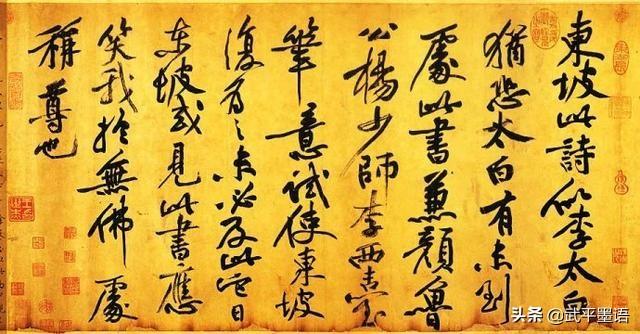 東坡此詩似李太白
猶恐太白有未到
處此書兼顏魯
公楊少師李西臺
筆意試使東坡
復為之未必及此它日
東坡或見此書應
笑我於無佛處
稱尊也
头条 @武平墨语